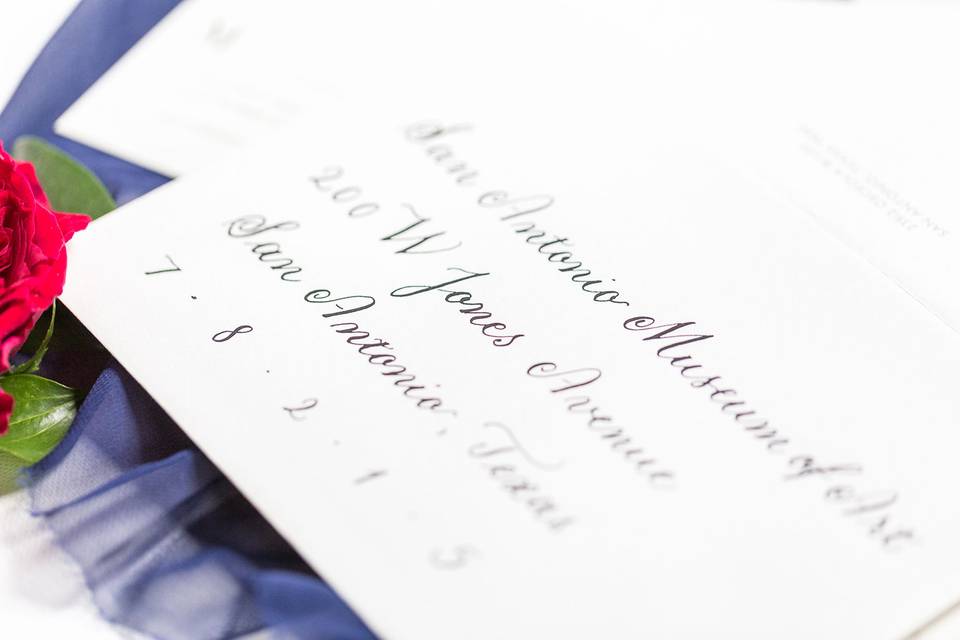 San Antonio Museum of Art
200 W Jones Avenue
San Antonio, Texas
7 . 8 . 2 . 1 . 5